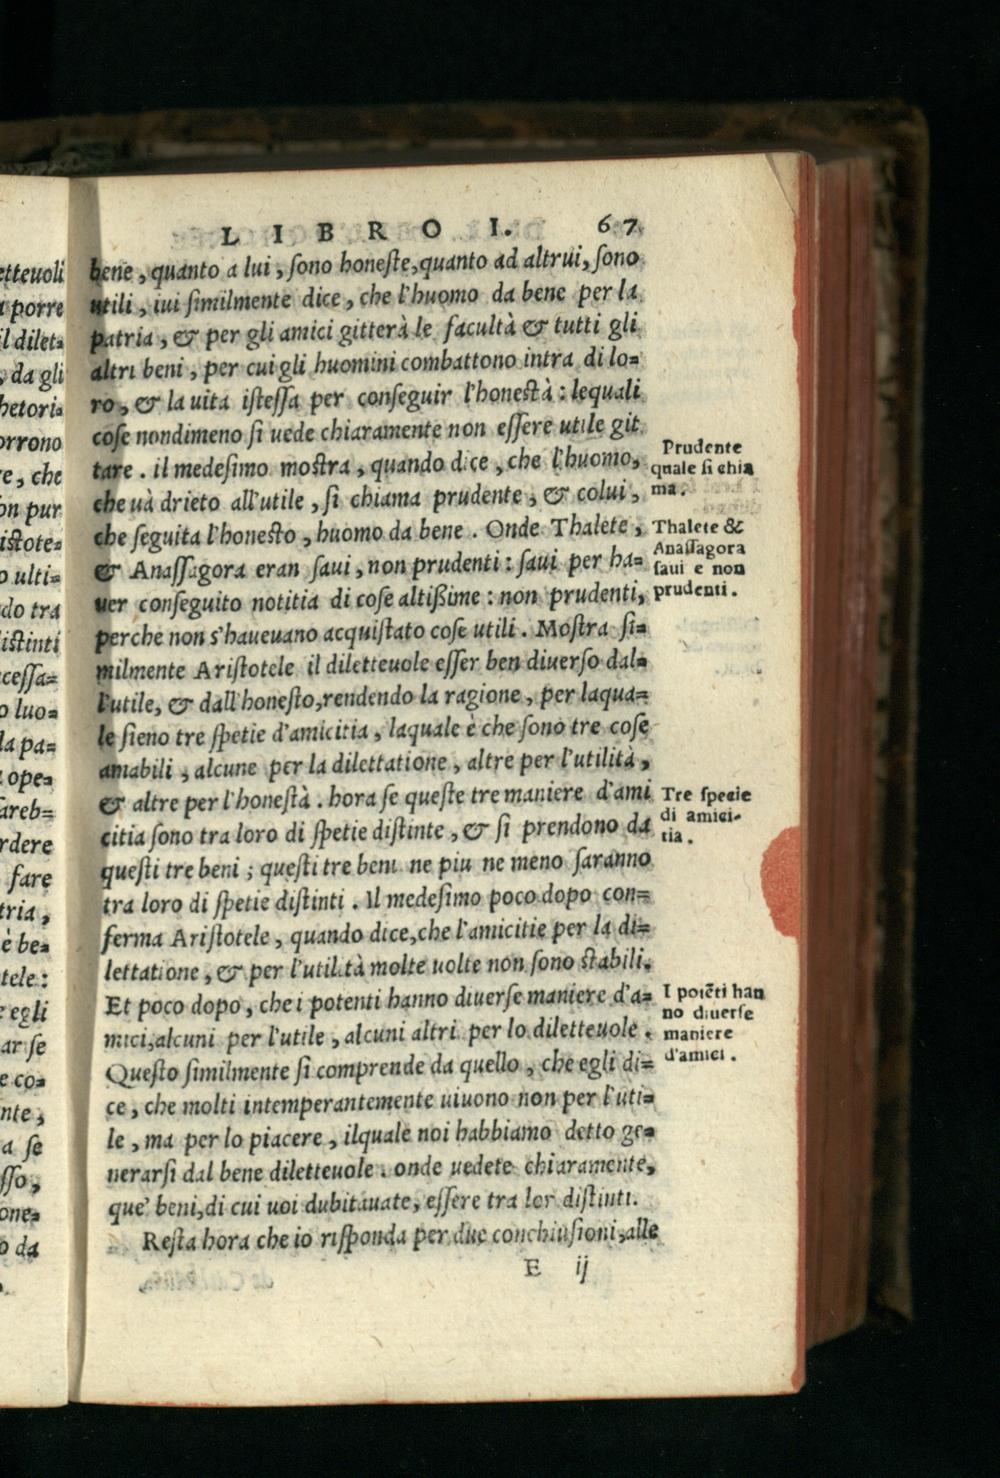 LIBRO I. 67
bene, quanto a lui, sono honeste, quanto ad altrui, sono
utili, iui similmente dice, che l'huomo da bene per la
patria, & per gli amici gitterà le facultà & tutti gli
altri beni, per cui gli huomini combattono intra di lo=
ro, & la uita istessa per conseguir l'honestà: lequali
cose nondimeno si uede chiaramente non essere utile git
tare. il medesimo mostra, quando dice, che l'huomo,
che uà drieto all'utile, si chiama prudente, & colui,
che seguita l'honesto, huomo da bene. Onde Thalete,
& Anassagora eran saui, non prudenti: saui per ha=
uer conseguito notitia di cose altissime: non prudenti,
perche non s'haueuano acquistato cose utili. Mostra si=
milmente Aristotele il diletteuole esser ben diuerso dal=
l'utile, & dall'honesto, rendendo la ragione, per laqua=
le sieno tre spetie d'amicitia, laquale è che sono tre cose
amabili, alcune per la dilettatione, altre per l'utilità,
& altre per l'honestà. hora se queste tre maniere d'ami
citia sono tra loro di spetie distinte, & si prendono da
questi tre beni; questi tre beni ne piu ne meno saranno
tra loro di spetie distinti. Il medesimo poco dopo con=
ferma Aristotele, quando dice, che l'amicitie per la di=
lettatione, & per l'utilità molte uolte non sono stabili.
Et poco dopo, che i potenti hanno diuerse maniere d'a=
mici, alcuni per l'utile, alcuni altri per lo diletteuole.
Questo similmente si comprende da quello, che egli di=
ce, che molti intemperantemente uiuono non per l'uti=
le, ma per lo piacere, ilquale noi habbiamo detto ge=
nerarsi dal bene diletteuole. onde uedete chiaramente,
que' beni, di cui uoi dubitauate, essere tra lor distinti.
Resta hora che io risponda per due conchiusioni, alle
E ij
Prudente
quale si chia
ma.
Thalete &
Anassagora
saui e non
prudenti.
Tre specie
di amici-
tia.
I potẽti han
no diuerse
maniere
d'amici.
etteuoli
a porre
il dilet=
, da gli
hetori=
orrono
re, che
on pur
istote=
o ulti=
do tra
istinti
cessa=
o luo=
la pa=
ope=
areb=
rdere
fare
tria,
è be=
tele:
e egli
ar se
e co=
nte,
a se
sso,
one=
o da